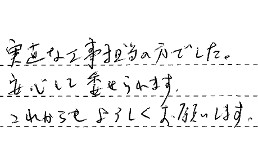 実直な工事担当の方でした。
安心して委せられます。
これからもよろしくお願いします。